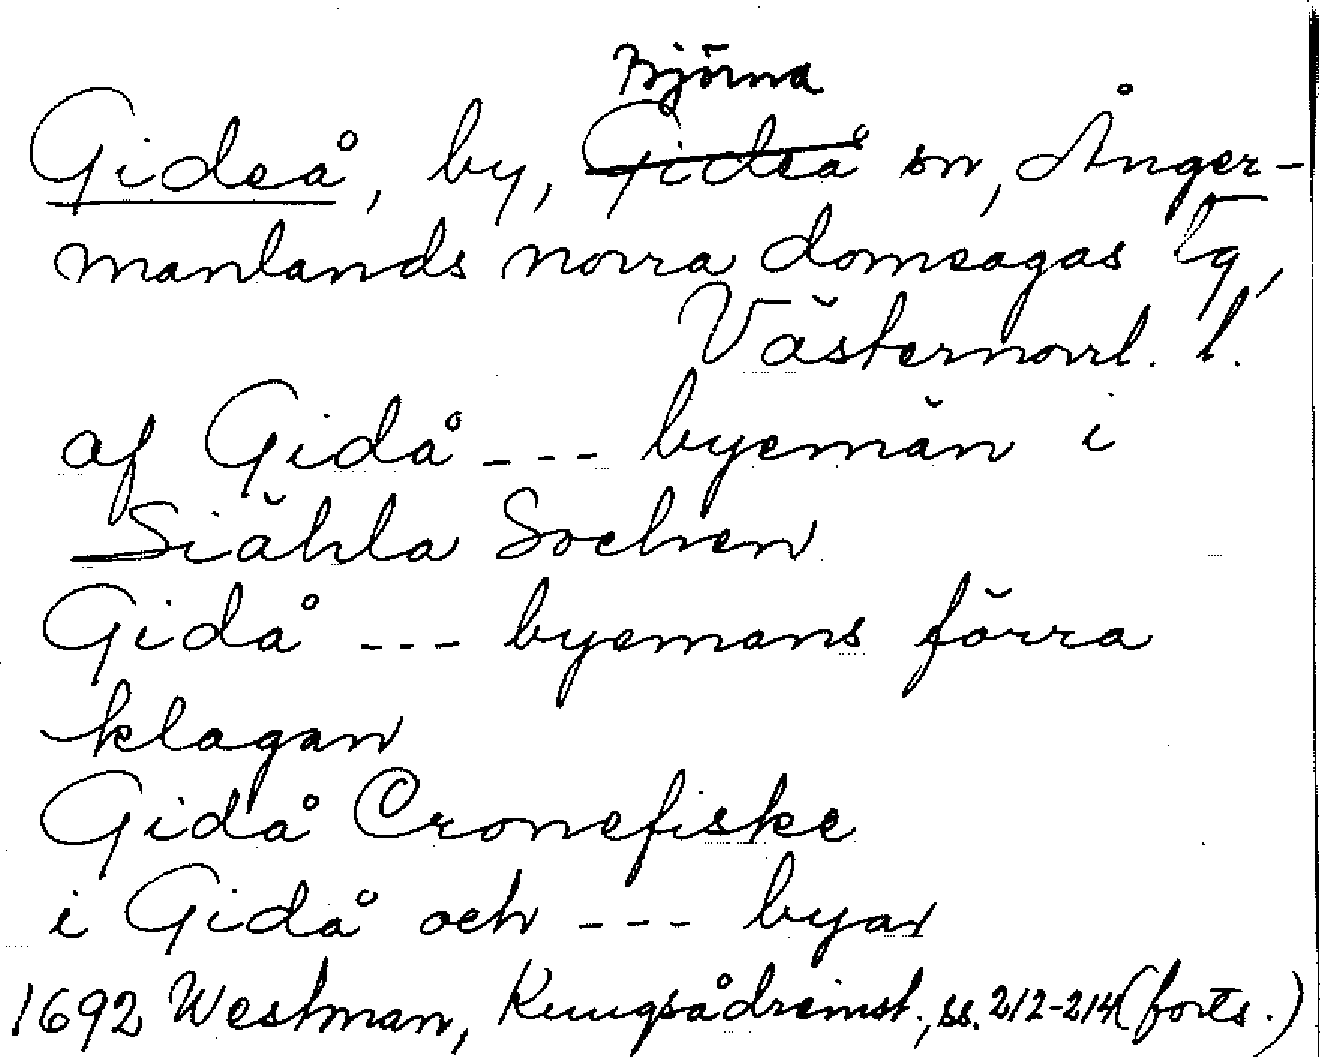 Björna
Gideå, by, Gideå sn, Ånger-
manlands norra domsagas tg,
Västernorrl. l.
af Gidå --- byemän i
Siähla Sochen
Gidå --- byemans förra
klagan
Gidå Cronefiske
i Gidå och --- byar
1692 Westman, Kungsådreinst., ss. 212-214 (forts.)